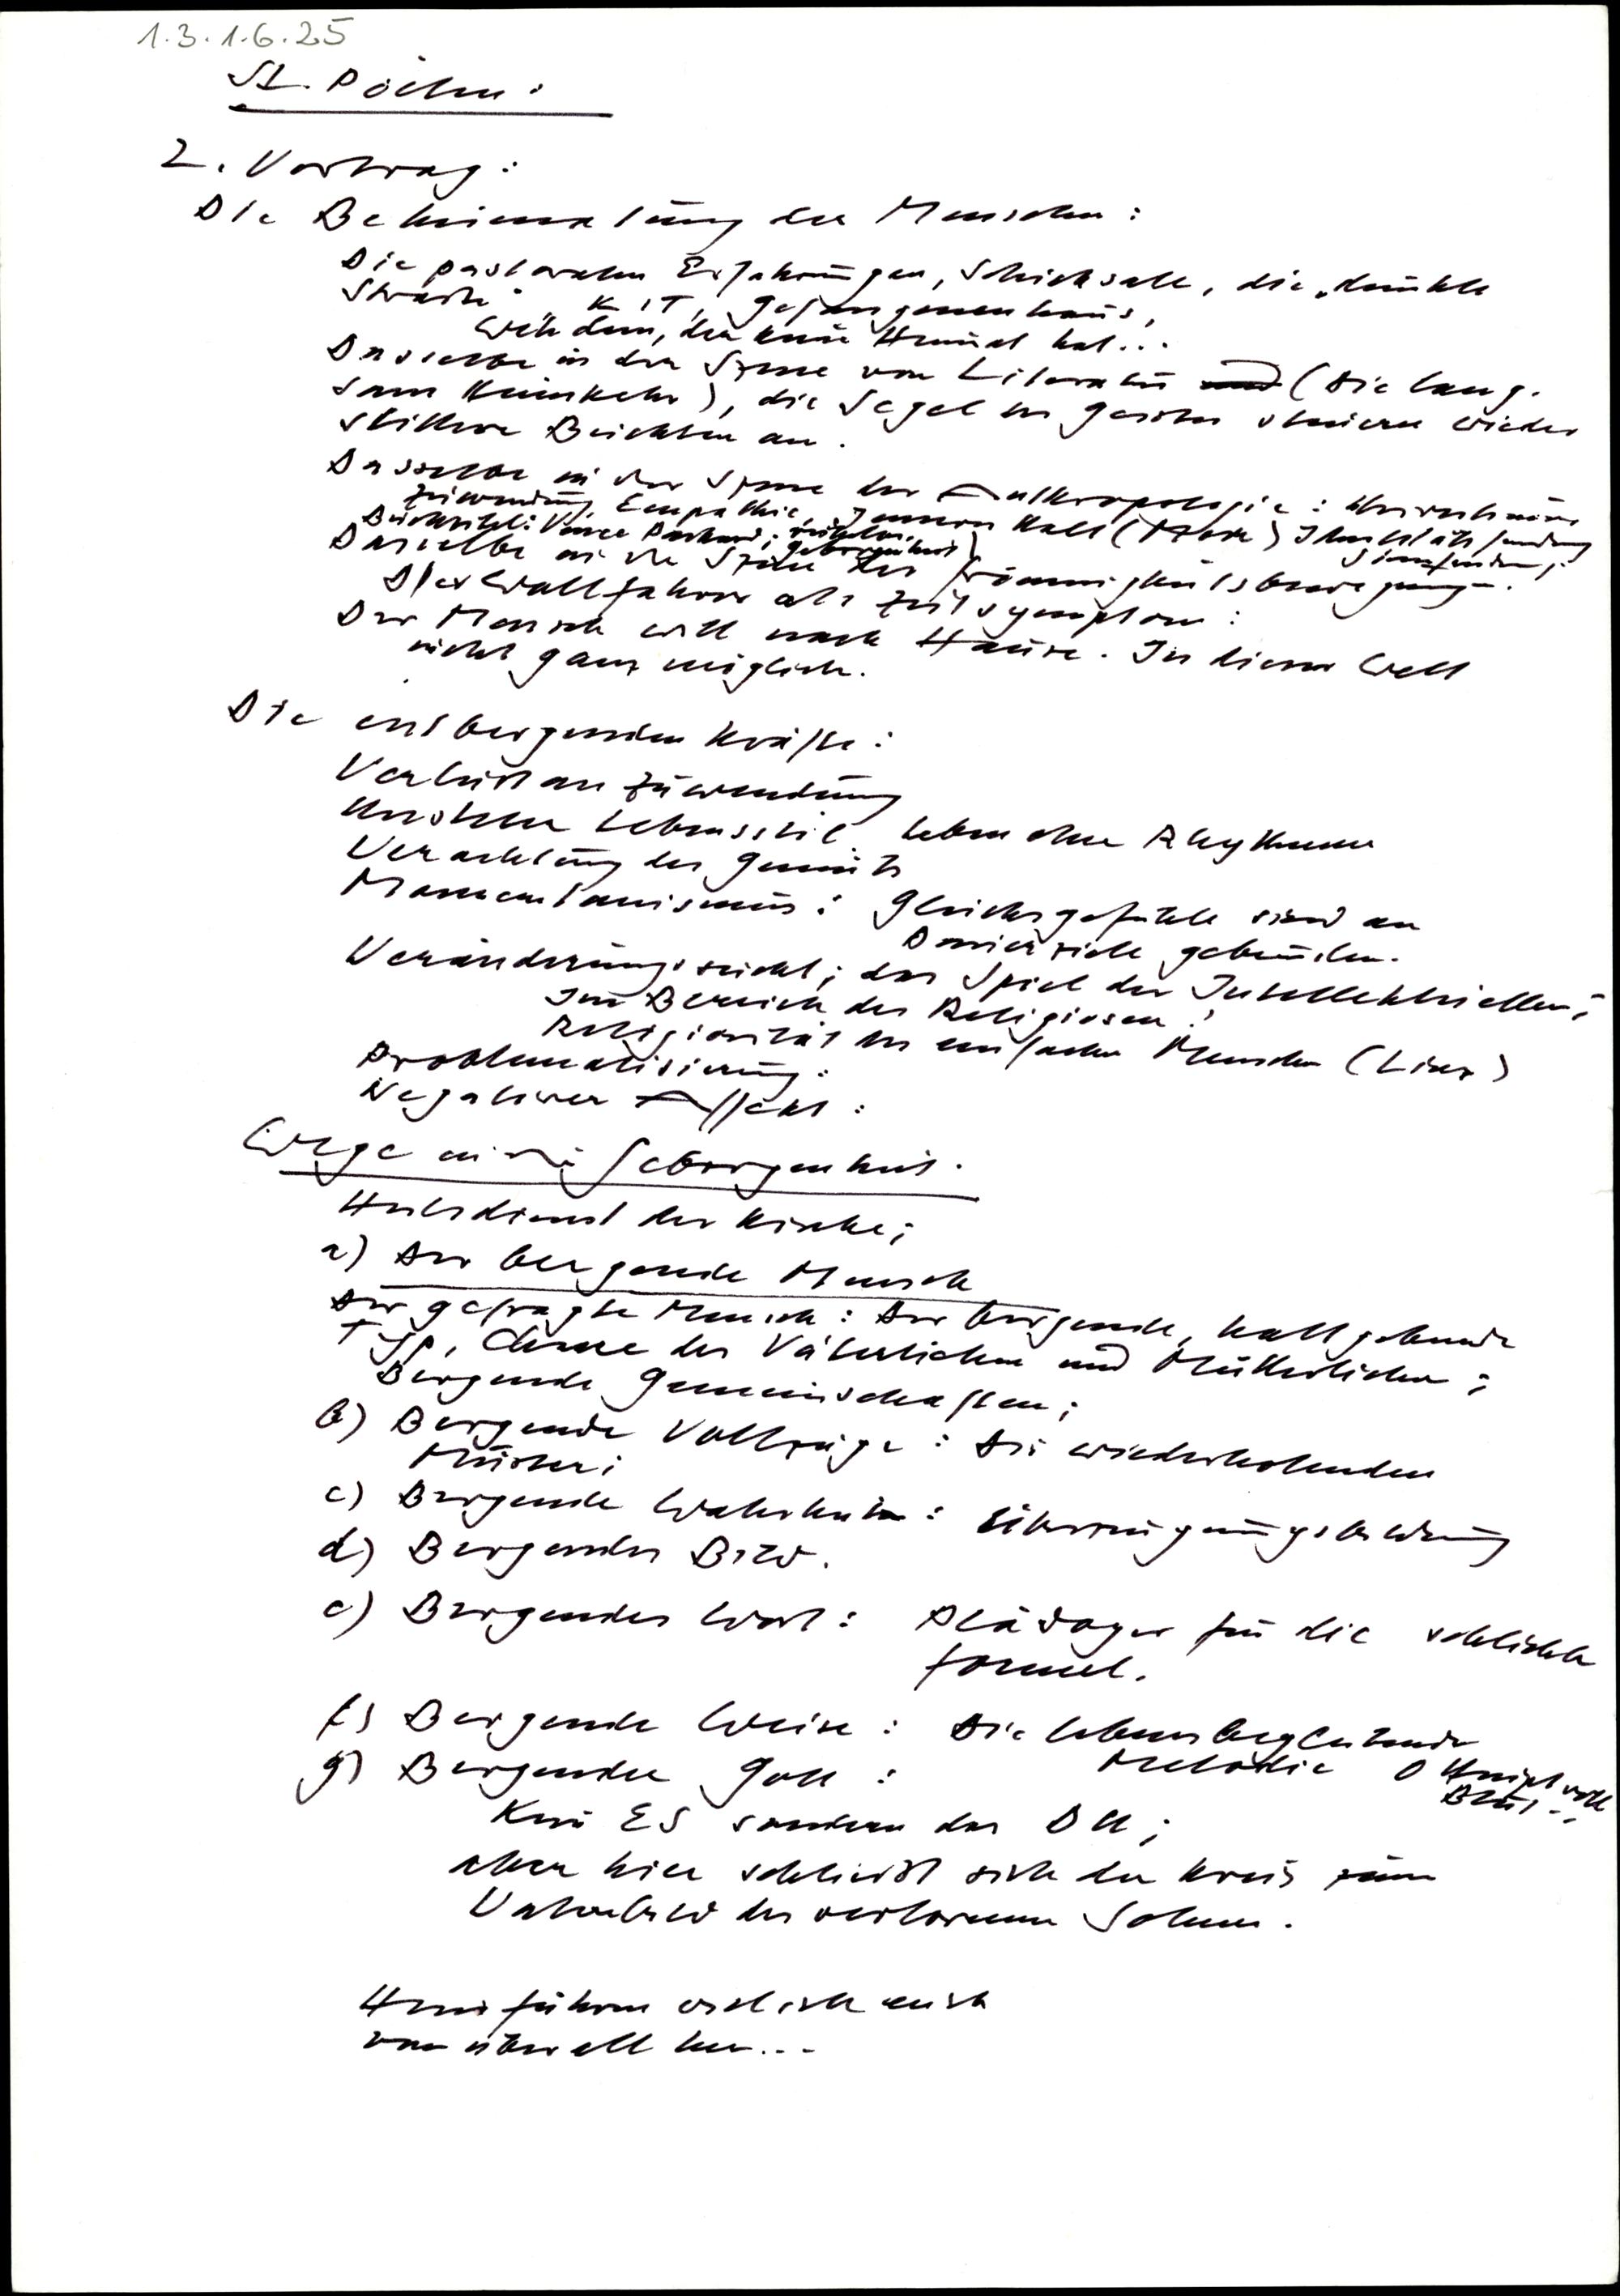 1.3.1.6.25
St. Pölten:
2. Vortrag:
Die Beheimatung des Menschen:
Die pastoralen Erfahrungen, Schicksale, die "dunkle
Straße" KIT, Gefangenenhaus,
Weh dem, der keine Heimat hat...
Dasselbe in der Szene von Literatur (Die lang-
same Heimkehr), die Segel des Geistes steuern wieder
stillere Buchten an.
Dasselbe in der Szene der Anthropologie:
Zuwendung, Empathie, inneren Halt Identitätsfindung
Buchtitel: Vance Packard; Sinnfindung;
Geborgenheit)
Dasselbe in der Szene der Frömmigkeitsbewegung.
Die Wallfahrer als Zeitsymptom:
Der Mensch will nach Hause. In dieser Welt
nicht ganz möglich.
Die entbergenden Kräfte:
Verlust an Zuwendung
Unsteter Lebensstil Leben ohne Rhythmus
Verachtung des Gemüts
Momentanismus: Glücksgefühle sind an
Dauerziele gebunden.
Veränderungssucht; das Spiel der Intellektuellen;
Im Bereich des Religiösen!
Religiosität des einfachen Menschen (Linz)
Problematisierung:
Negativer Affekt:
Wege in die Geborgenheit.
Heilsdienst der Kirche;
a) Der bergende Mensch
Der gefragte Mensch: Der bergende, haltgebende
Typ, Chance des Väterlichen und Mütterlichen;
Bergende Gemeinschaften;
b) Bergende Vollzüge: Die wiederholenden
Muster;
c) Bergende Wahrheit: Überzeugungsbildung
d) Bergendes Bild.
e) Bergendes Wort: Plädoyer für die schlichte
Formel.
f) Bergende Weise: Die lebensbegleitende
Melodie O Haupt voll
Blut..
g) Bergender Gott:
Kein ES sondern das DU;
aber hier schließt sich der Kreis zum
Vaterbild des verlorenen Sohnes.
Heimführen will ich euch
von überall her...